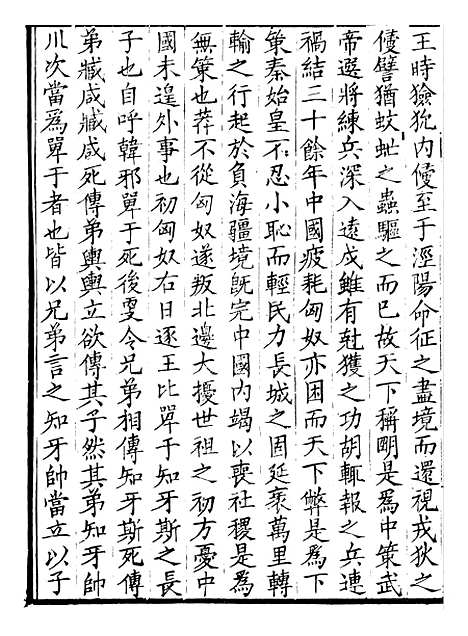 王時獫狁內侵至于涇陽命征之盡境而還視戎狄之
侵譬猶蚊蚍之蟲驅之而已故天下稱明是為中策武
帝選將練兵深入遠戍雖有尅獲之功胡輒報之兵連
禍結三十餘年中國疲耗匈奴亦困而天下弊是為下
策秦始皇不忍小恥而輕民力長城之固延袤萬里轉
輸之行起於負海疆境既完中國內竭以喪社稷是為
無策也莽不從匈奴遂叛北邊大擾世祖之初方憂中
國未遑外事也初匈奴右日逐王比單于知牙斯之長
子也自呼韓邪單于死後雯令兄弟相傳知牙斯死傳
弟臧咸臧咸死傳弟輿輿立欲傳其子然其弟知牙帥
川次當為單于者也皆以兄弟言之知牙帥當立以子